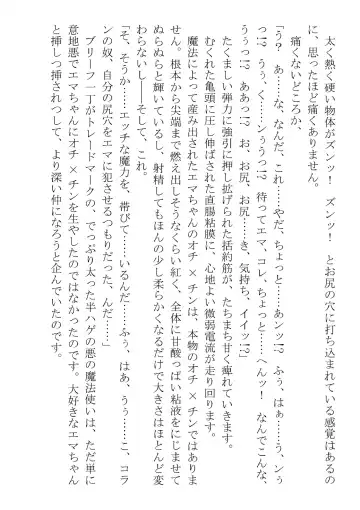 太く熱く硬い物体がズンッ！　ズンッ！　とお尻の穴に打ち込まれている感覚はあるの
に、思ったほど痛くありません。
痛くないどころか、
「う？　あ……な、なんだ、これ……やだ、ちょっと……あンッ!?　ふぅ、はぁ……う、ンぅ
っ!?　うぅ、く……ンぅうっ!?　待ってエマ、コレ、ちょっと……へんッ！　なんでこんな、
うぅぅっ!?　ああっ!?　お、お尻、お尻……き、気持ち、イイッ!?」
たくましい弾力に強引に押し拡げられた括約筋が、たちまち甘く痺れていきます。
むくれた亀頭に圧し伸ばされた直腸粘膜に、心地よい微弱電流が走り回ります。
魔法によって産み出されたエマちゃんのオチ×チンは、本物のオチ×チンではありま
せん。根本から尖端まで燃え出しそうなくらい紅く、全体に甘酸っぱい粘液をにじませて
ぬらぬらと輝いているし、射精してもほんの少し柔らかくなるだけで大きさはほとんど変
わらないし――そして、これ。
「そ、そうか……エッチな魔力を、帯びて……いるんだ……ふぅ、はあ、うぅ……こ、コラ
ンの奴、自分の尻穴をエマに犯させるつもりだった、んだ……」
ブリーフ一丁がトレードマークの、でっぷり太った半ハゲの悪の魔法使いは、ただ単に
意地悪でエマちゃんにオチ×チンを生やしたのではなかったのです。大好きなエマちゃん
と挿しつ挿されつして、より深い仲になろうと企んでいたので